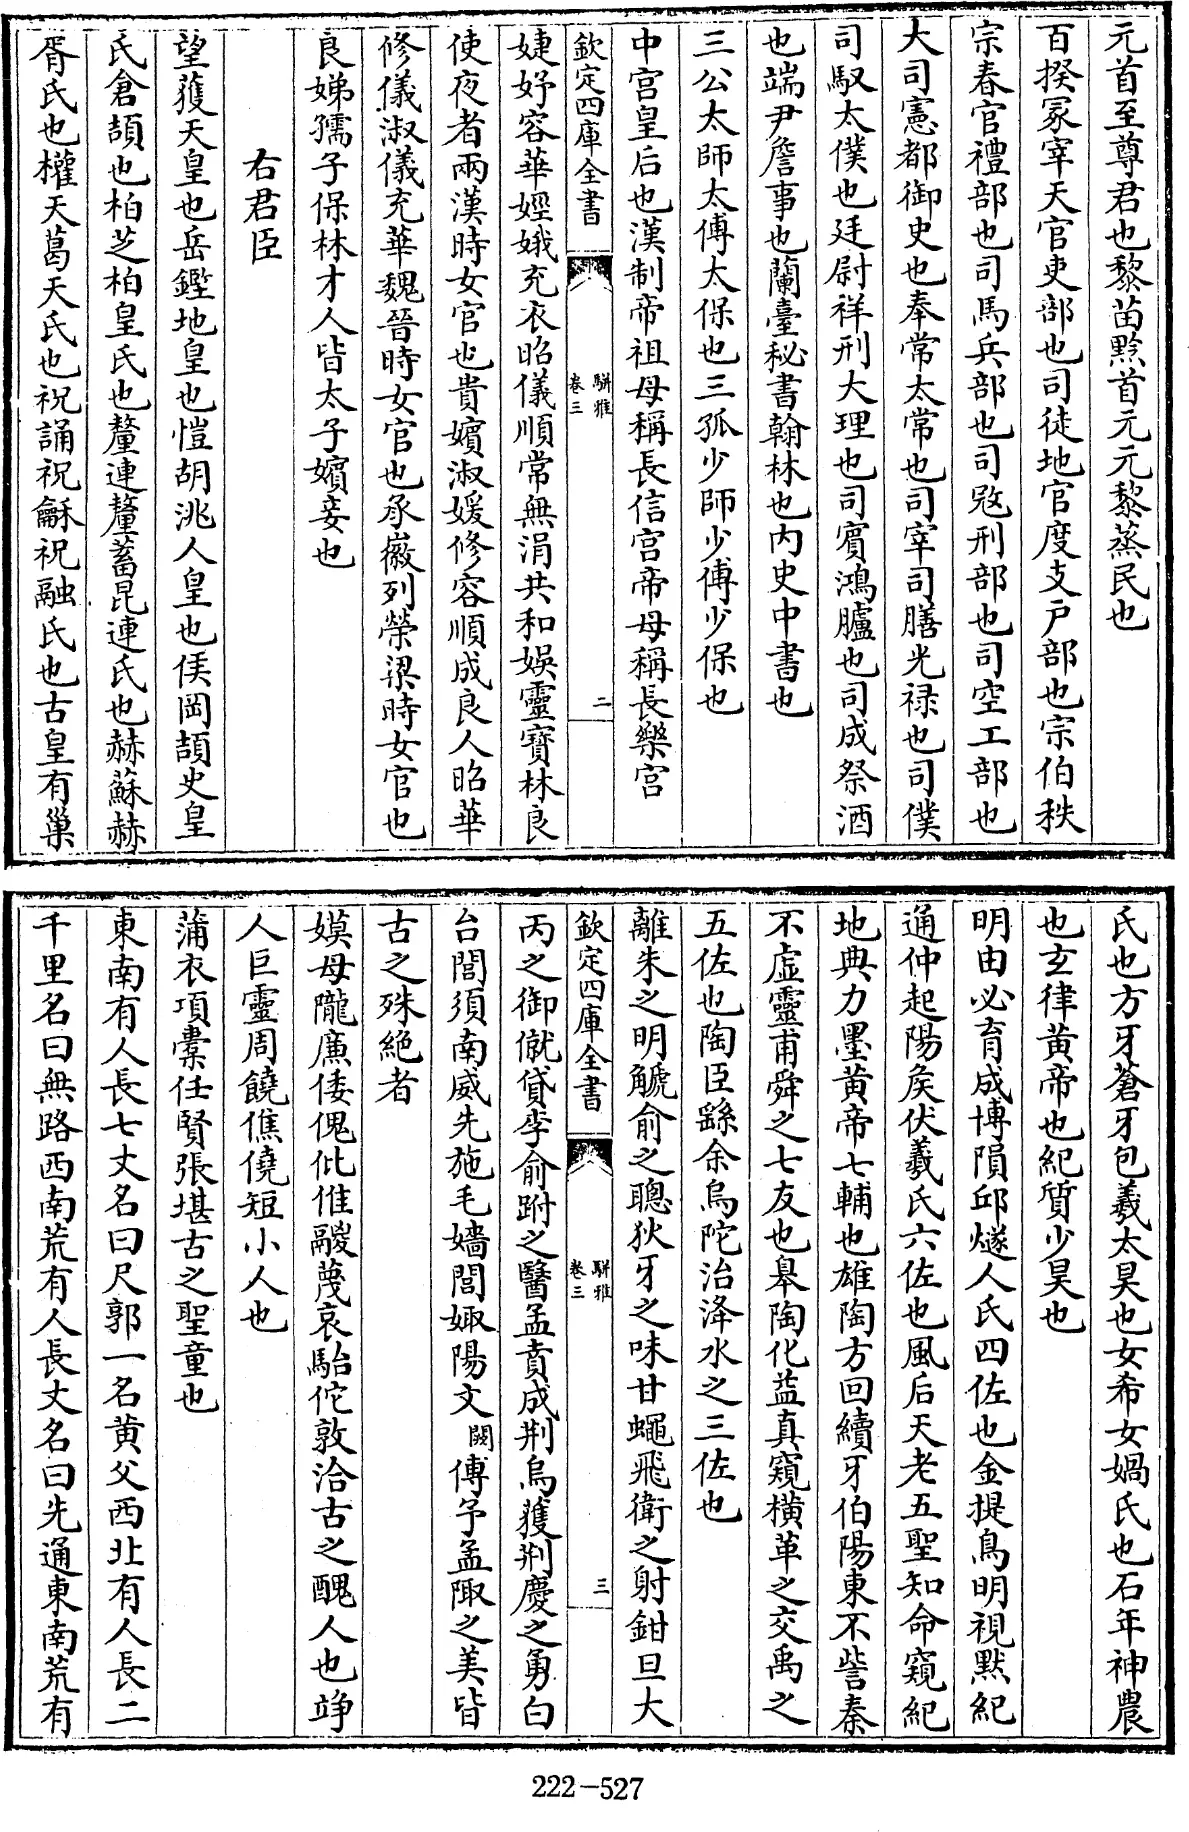 元首至尊君也黎苗黔首元元黎蒸民也
百揆冢宰天官吏部也司徒地官度支戶部也宗伯秩
宗春官禮部也司馬兵部也司寇刑部也司空工部也
大司憲都御史也奉常太常也司宰司膳光禄也司僕
司馭太僕也廷尉祥刑大理也司賓鴻臚也司成祭酒
也端尹詹事也蘭臺秘書翰林也内史中書也
三公太師太傅太保也三孤少師少傅少保也
中宮皇后也漢制帝祖母稱長信宮帝母稱長樂宮
欽定四庫全書
駢雅
卷三
二
婕妤容華娙娥充衣昭儀順常無涓共和娛靈寶林良
使夜者兩漢時女官也貴嬪淑媛修容順成良人昭華
修儀淑儀充華魏晉時女官也承徽列榮梁時女官也
良娣孺子保林才人皆太子嬪妾也
右君臣
望獲天皇也岳鏗地皇也愷胡洮人皇也侯岡頡史皇
氏倉頡也柏芝柏皇氏也釐連釐蓄昆連氏也赫蘇赫
胥氏也權天葛天氏也祝誦祝龢祝融氏也古皇有巢
氏也方牙蒼牙包羲太昊也女希女媧氏也石年神農
也玄律黄帝也紀質少昊也
明由必育成博隕邱燧人氏四佐也金提鳥明視默紀
通仲起陽矦伏羲氏六佐也風后天老五聖知命窺紀
地典力墨黄帝七輔也雄陶方回續牙伯陽東不訾秦
不虛靈甫舜之七友也皋陶化益真窺横革之交禹之
五佐也陶臣繇余烏陀治洚水之三佐也
離朱之明觬俞之聰狄牙之味甘蠅飛衛之射鉗且大
欽定四庫全書
駢雅
卷三
三
丙之御僦貸季俞跗之醫孟賁成荆烏獲荆慶之勇白
台閭須南威先施毛嬙閭娵陽文闕傅予孟陬之美皆
古之殊絶者
嫫母隴廉倭傀仳倠鬷蔑哀駘佗敦洽古之醜人也竫
人巨靈周饒僬僥短小人也
蒲衣項橐任賢張堪古之聖童也
東南有人長七丈名曰尺郭一名黄父西北有人長二
千里名曰無路西南荒有人長丈名曰先通東南荒有
222-527